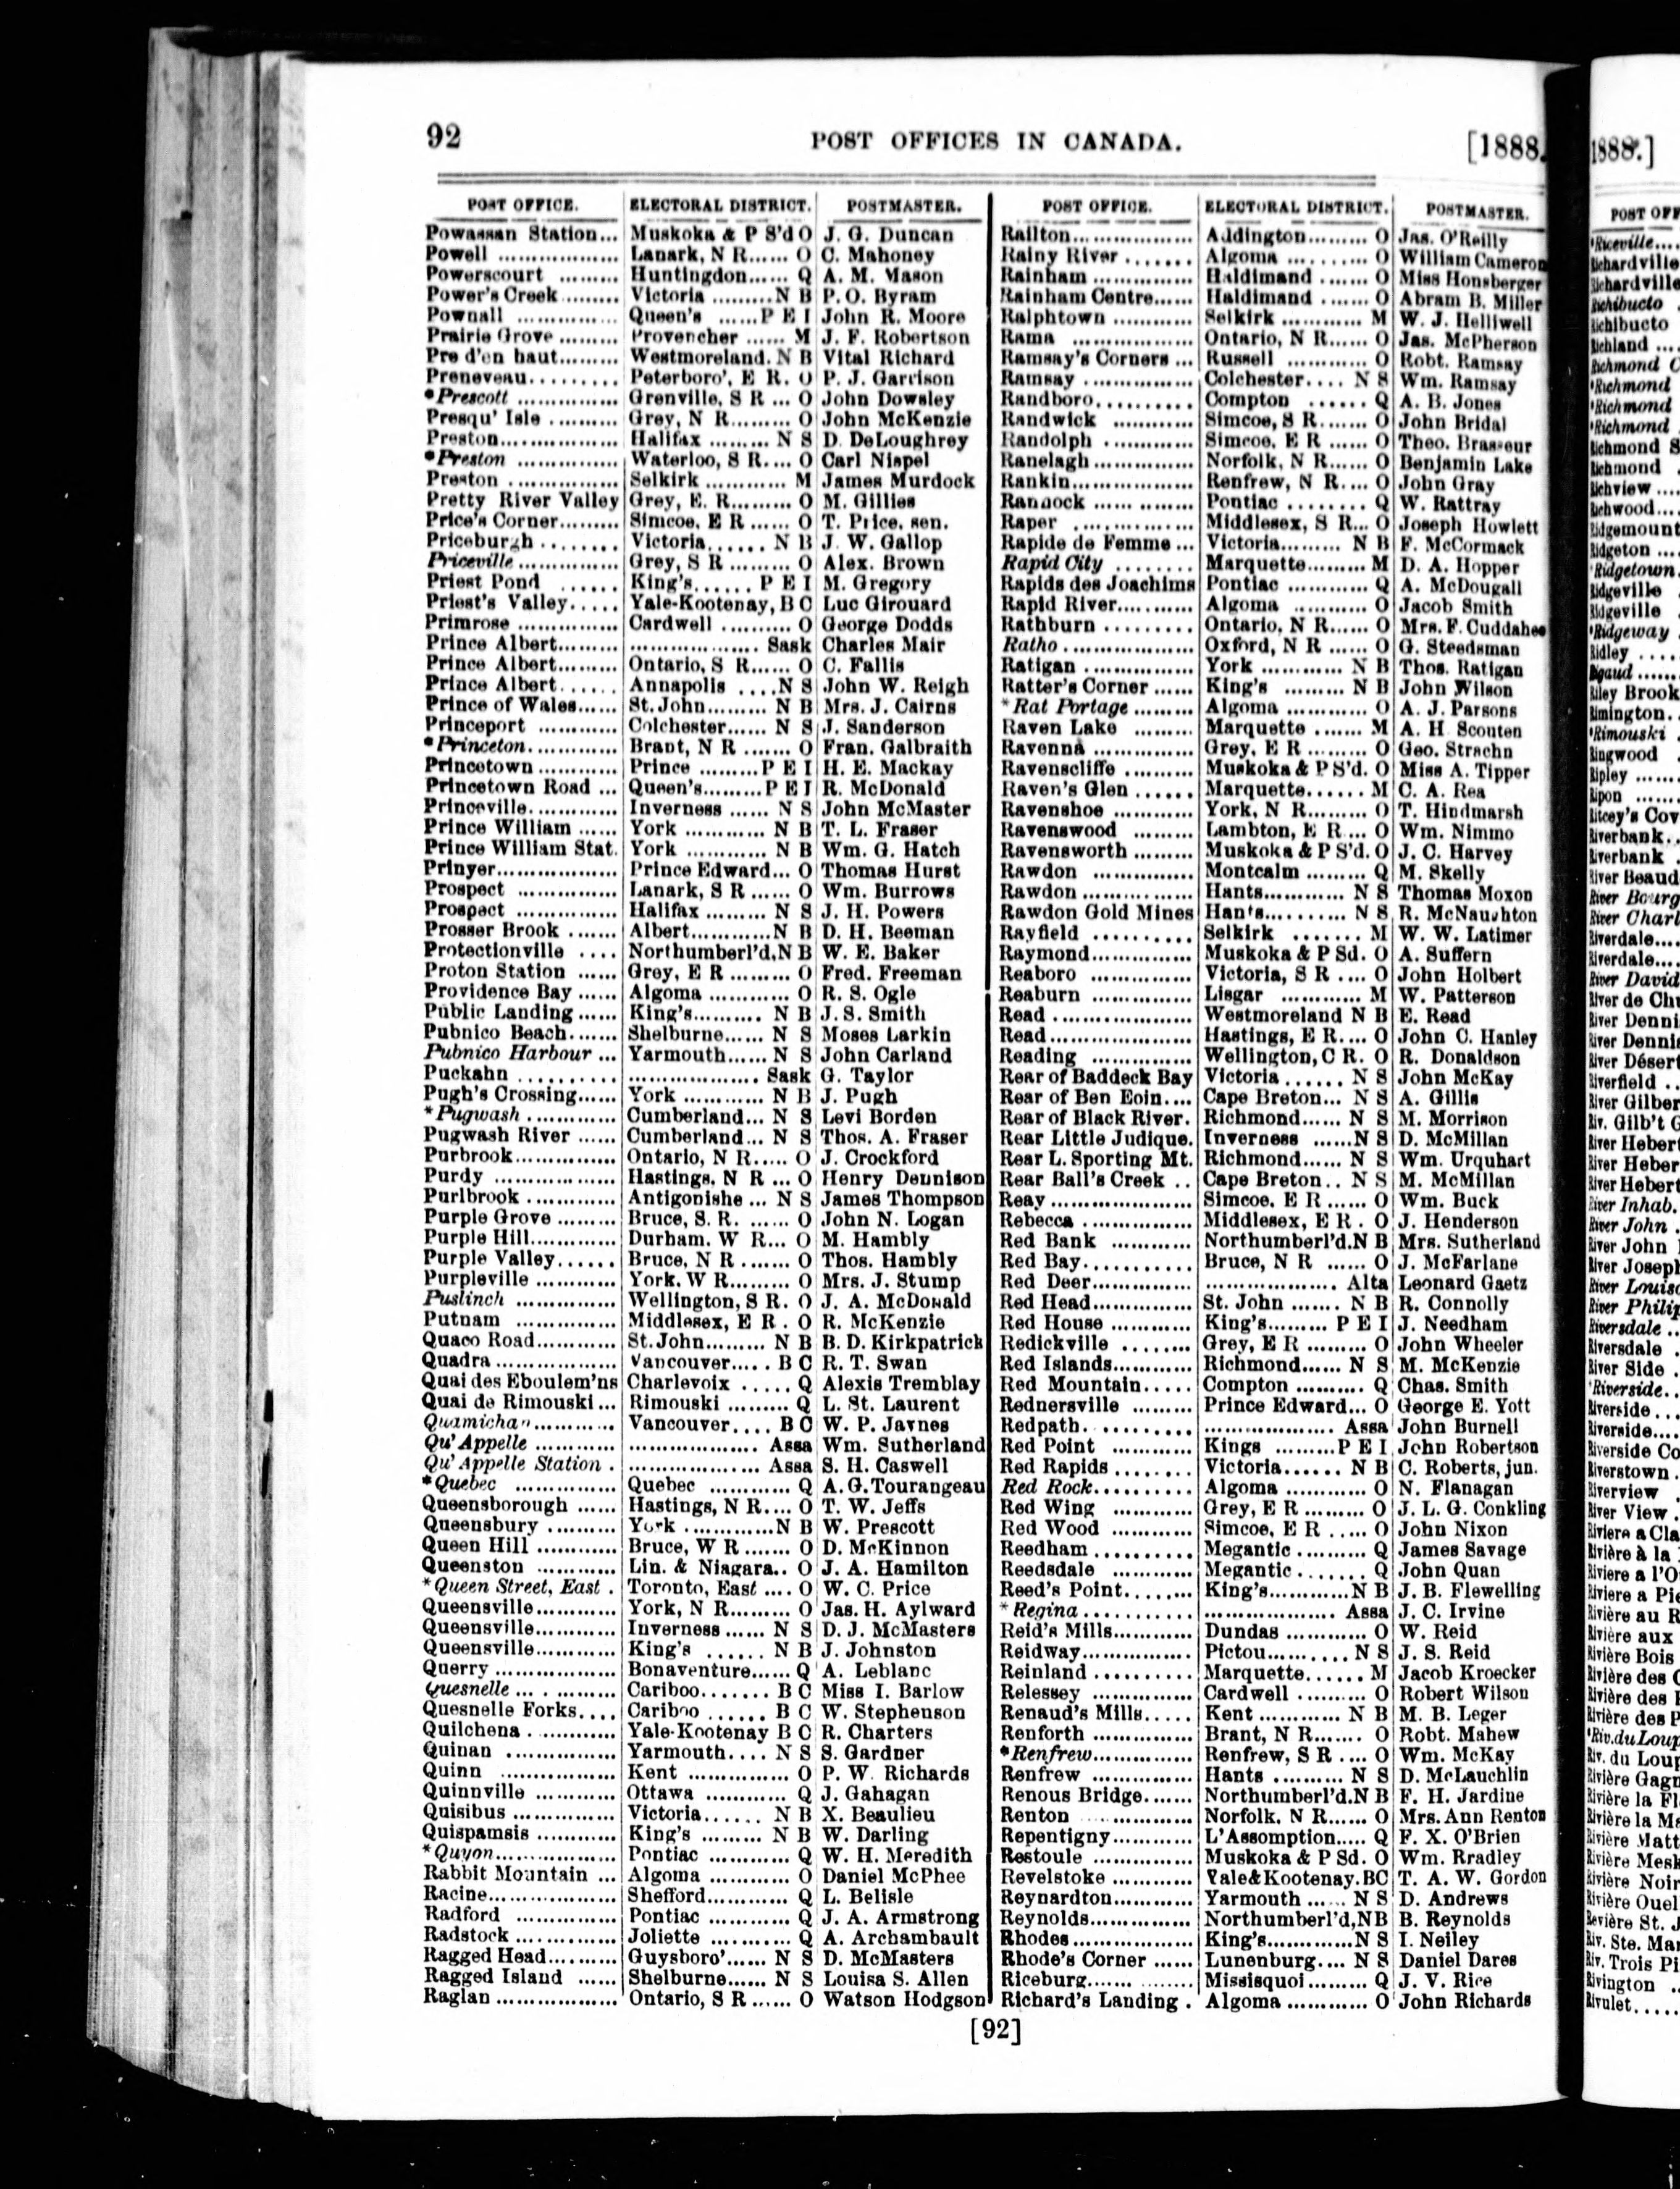 92 POST OFFICES IN CANADA. [1888.
POST OFFICE. ELECTORAL DISTRICT. POSTMASTER.
Powassan Station... Muskoka & P S'd O J. G. Duncan
Powell .................. Lanark, N R...... O C. Mahoney
Powerscourt ......... Huntingdon...... Q A. M. Mason
Power's Creek ......... Victoria .........N B P. O. Byram
Pownall ............... Queen's ......P E I John R. Moore
Prairie Grove ......... Provencher ...... M J. F. Robertson
Pre d'en haut......... Westmoreland. N B Vital Richard
Preneveau......... Peterboro', E R. O P. J. Garrison
*Prescott ............... Grenville, S R ... O John Dowsley
Presqu' Isle .......... Grey, N R......... O John McKenzie
Preston................. Halifax ......... N S D. DeLoughrey
*Preston ............... Waterloo, S R.... O Carl Nispel
Preston ................. Selkirk ............ M James Murdock
Pretty River Valley Grey, E. R......... O M. Gillies
Price's Corner......... Simcoe, E R ...... O T. Price, sen.
Priceburgh ........ Victoria...... N B J. W. Gallop
Priceville............... Grey, S R ......... O Alex. Brown
Priest Pond ...... King's...... P E I M. Gregory
Priest's Valley..... Yale-Kootenay, B C Luc Girouard
Primrose ............... Cardwell .......... O George Dodds
Prince Albert......... ................... Sask Charles Mair
Prince Albert......... Ontario, S R...... O C. Fallis
Prince Albert...... Annapolis ....N S John W. Reigh
Prince of Wales...... St. John......... N B Mrs. J. Cairns
Princeport ............ Colchester...... N S J. Sanderson
*Princeton............. Brant, N R ....... O Fran. Galbraith
Princetown ............ Prince .........P E I H. E. Mackay
Princetown Road ... Queen's.........P E I R. McDonald
Princeville............. Inverness ...... N S John McMaster
Prince William ...... York ............ N B T. L. Fraser
Prince William Stat. York ............ N B Wm. G. Hatch
Prinyer.................. Prince Edward... O Thomas Hurst
Prospect ............... Lanark, S R ...... O Wm. Burrows
Prospect ............... Halifax ......... N S J. H. Powers
Prosser Brook ....... Albert............ N B D. H. Beeman
Protectionville .... Northumberl'd,N B W. E. Baker
Proton Station ...... Grey, E R ......... O Fred. Freeman
Providence Bay ...... Algoma ............ O R. S. Ogle
Public Landing ...... King's.......... N B J. S. Smith
Pubnico Beach....... Shelburne...... N S Moses Larkin
Pubnico Harbour ... Yarmouth...... N S John Carland
Puckahn .......... ................... Sask G. Taylor
Pugh's Crossing...... York ............ N B J. Pugh
*Pugwash ............. Cumberland... N S Levi Borden
Pugwash River ...... Cumberland... N S Thos. A. Fraser
Purbrook............... Ontario, N R..... O J. Crockford
Purdy .................. Hastings, N R ... O Henry Dennison
Purlbrook ............. Antigonishe ... N S James Thompson
Purple Grove ......... Bruce, S. R. ...... O John N. Logan
Purple Hill............. Durham. W R... O M. Hambly
Purple Valley...... Bruce, N R ....... O Thos. Hambly
Purpleville ............ York, W R......... O Mrs. J. Stump
Puslinch ............... Wellington, S R. O J. A. McDonald
Putnam ............... Middlesex, E R . O R. McKenzie
Quaco Road............ St. John......... N B B. D. Kirkpatrick
Quadra .................. Vancouver..... B C R. T. Swan
Quai des Eboulem'ns Charlevoix ..... Q Alexis Tremblay
Quai de Rimouski ... Rimouski ......... Q L. St. Laurent
Quamichan............ Vancouver.... B C W. P. Jaynes
Qu' Appelle ............ ................... Assa Wm. Sutherland
Qu' Appelle Station . ................... Assa S. H. Caswell
*Quebec ............... Quebec ............ Q A. G. Tourangeau
Queensborough ...... Hastings, N R.... O T. W. Jeffs
Queensbury .......... York .............N B W. Prescott
Queen Hill ............ Bruce, W R ....... O D. McKinnon
Queenston ............ Lin. & Niagara.. O J. A. Hamilton
*Queen Street, East . Toronto, East .... O W. C. Price
Queensville............ York, N R......... O Jas. H. Aylward
Queensville............ Inverness ...... N S D. J. McMasters
Queensville............ King's ...... N B J. Johnston
Querry .................. Bonaventure...... Q A. Leblanc
Quesnelle ............... Cariboo....... B C Miss I. Barlow
Quesnelle Forks.... Cariboo ...... B C W. Stephenson
Quilchena ............ Yale-Kootenay B C R. Charters
Quinan ................ Yarmouth.... N S S. Gardner
Quinn ................. Kent ............... O P. W. Richards
Quinnville ............ Ottawa ............ Q J. Gahagan
Quisibus ............... Victoria...... N B X. Beaulieu
Quispamsis ............ King's ......... N B W. Darling
*Quyon.................. Pontiac ............ Q W. H. Meredith
Rabbit Mountain ... Algoma ............ O Daniel McPhee
Racine................... Shefford............ Q L. Belisle
Radford ............... Pontiac ............ Q J. A. Armstrong
Radstock ............... Joliette ............ Q A. Archambault
Ragged Head.......... Guysboro'...... N S D. McMasters
Ragged Island ...... Shelburne...... N S Louisa S. Allen
Raglan .................. Ontario, S R ...... O Watson Hodgson
POST OFFICE. ELECTORAL DISTRICT. POSTMASTER.
Railton.................. Addington......... O Jas. O'Reilly
Rainy River ....... Algoma .......... O William Cameron
Rainham ............... Haldimand ....... O Miss Honsberger
Rainham Centre...... Haldimand ....... O Abram B. Miller
Ralphtown ............ Selkirk ............ M W. J. Helliwell
Rama .................. Ontario, N R...... O Jas. McPherson
Ramsay's Corners ... Russell ............ O Robt. Ramsay
Ramsay ................ Colchester.... N S Wm. Ramsay
Randboro.......... Compton ...... Q A. B. Jones
Randwick ............ Simcoe, S R....... O John Bridal
Randolph ............. Simcoe, E R ...... O Theo. Brasseur
Ranelagh............... Norfolk, N R...... O Benjamin Lake
Rankin.................. Renfrew, N R.... O John Gray
Rannock ............... Pontiac ........ Q W. Rattray
Raper .................. Middlesex, S R... O Joseph Howlett
Rapide de Femme ... Victoria......... N B F. McCormack
Rapid City ........ Marquette......... M D. A. Hopper
Rapids des Joachims Pontiac ........... Q A. McDougall
Rapid River........... Algoma ........... O Jacob Smith
Rathburn ......... Ontario, N R...... O Mrs. F. Cuddahee
Ratho .................. Oxford, N R ...... O G. Steedsman
Ratigan ................ York ............ N B Thos. Ratigan
Ratter's Corner ...... King's ......... N B John Wilson
*Rat Portage ......... Algoma ............ O A. J. Parsons
Raven Lake ......... Marquette ....... M A. H Scouten
Ravenna ............... Grey, E R ......... O Geo. Strachn
Ravenscliffe .......... Muskoka & P S'd. O Miss A. Tipper
Raven's Glen ...... Marquette...... M C. A. Rea
Ravenshoe ............ York, N R......... O T. Hindmarsh
Ravenswood ......... Lambton, E R ... O Wm. Nimmo
Ravensworth ......... Muskoka & P S'd. O J. C. Harvey
Rawdon ............... Montcalm ......... Q M. Skelly
Rawdon ............... Hants............ N S Thomas Moxon
Rawdon Gold Mines Hants.......... N S R. McNaughton
Rayfield .......... Selkirk ....... M W. W. Latimer
Raymond............... Muskoka & P Sd. O A. Suffern
Reaboro ............... Victoria, S R .... O John Holbert
Reaburn ............... Lisgar ............ M W. Patterson
Read ..................... Westmoreland N B E. Read
Read..................... Hastings, E R.... O John C. Hanley
Reading ............... Wellington, C R. O R. Donaldson
Rear of Baddeck Bay Victoria ...... N S John McKay
Rear of Ben Eoin.... Cape Breton... N S A. Gillis
Rear of Black River. Richmond...... N S M. Morrison
Rear Little Judique. Inverness ......N S D. McMillan
Rear L. Sporting Mt. Richmond...... N S Wm. Urquhart
Rear Ball's Creek .. Cape Breton.. N S M. McMillan
Reay..................... Simcoe, E R ...... O Wm. Buck
Rebecca ................ Middlesex, E R . O J. Henderson
Red Bank ............ Northumberl'd.N B Mrs. Sutherland
Red Bay........... Bruce, N R ...... O J. McFarlane
Red Deer............... ................... Alta Leonard Gaetz
Red Head............... St. John ....... N B R. Connolly
Red House ............ King's......... P E I J. Needham
Redickville ........ Grey, E R ......... O John Wheeler
Red Islands............ Richmond...... N S M. McKenzie
Red Mountain..... Compton .......... Q Chas. Smith
Rednersville ......... Prince Edward... O George E. Yott
Redpath........... ................... Assa John Burnell
Red Point ............ Kings .........P E I John Robertson
Red Rapids ........ Victoria...... N B C. Roberts, jun.
Red Rock.......... Algoma ............ O N. Flanagan
Red Wing ............ Grey, E R ......... O J. L. G. Conkling
Red Wood ............ Simcoe, E R ..... O John Nixon
Reedham .......... Megantic .......... Q James Savage
Reedsdale ............ Megantic ....... Q John Quan
Reed's Point......... King's............N B J. B. Flewelling
*Regina ........... ................... Assa J. C. Irvine
Reid's Mills............ Dundas ............ O W. Reid
Reidway................ Pictou.......... N S J. S. Reid
Reinland .......... Marquette...... M Jacob Kroecker
Relessey ............... Cardwell .......... O Robert Wilson
Renaud's Mills..... Kent ............ N B M. B. Leger
Renforth ............... Brant, N R....... O Robt. Mahew
*Renfrew............... Renfrew, S R .... O Wm. McKay
Renfrew ............... Hants .......... N S D. McLauchlin
Renous Bridge....... Northumberl'd.N B F. H. Jardine
Renton ............... Norfolk, N R...... O Mrs. Ann Renton
Repentigny............ L'Assomption..... Q F. X. O'Brien
Restoule ............... Muskoka & P Sd. O Wm. Rradley
Revelstoke ............ Yale&Kootenay.BC T. A. W. Gordon
Reynardton............ Yarmouth ...... N S D. Andrews
Reynolds............... Northumberl'd,NB B. Reynolds
Rhodes.................. King's............N S I. Neiley
Rhode's Corner ...... Lunenburg.... N S Daniel Dares
Riceburg............... Missisquoi......... Q J. V. Rice
Richard's Landing . Algoma ............ O John Richards
[92]
1888.]
POST OFF
*Riceville....
Richibucto
Richland ....
Richmond C
*Richmond
*Richmond
*Richmond
Richmond S
Richmond
Richview ....
Richwood....
Ridgemount
Ridgeton ....
*Ridgetown.
Ridgeville
Ridgeville
*Ridgeway
Ridley ....
Rigaud ......
Riley Brook
Rimington..
*Rimouski
Ringwood
Ripley ......
Ripon ......
Ritcey's Cov
Riverbank..
Riverbank .
River Beaud
River Bourg
River Charl
Riverdale....
Riverdale....
River David
River de Chu
River Denni
River Dennis
River Désert
Riverfield ..
River Gilber
Riv. Gilb't G
River Hebert
River Heber
River Hebert
River Inhab.
River John .
River John
River Joseph
River Louiso
River Philip
Riversdale ..
Riversdale .
River Side .
*Riverside..
Riverside...
Riverside....
Riverside Co
Riverstown .
Riverview .
River View .
Riviere a Cla
Rivière à la
Riviere a l'O
Riviere a Pie
Rivière au R
Rivière aux
Rivière Bois
Rivière des C
Rivière des
Rivière des P
*Riv.du Loup
Riv. du Loup
Rivière Gagn
Rivière la Fl
Rivière la Ma
Rivière Matt
Rivière Mesk
Rivière Noir
Rivière Ouel
Revière St. J
Riv. Ste. Mar
Riv. Trois Pi
Rivington ..
Rivulet.....